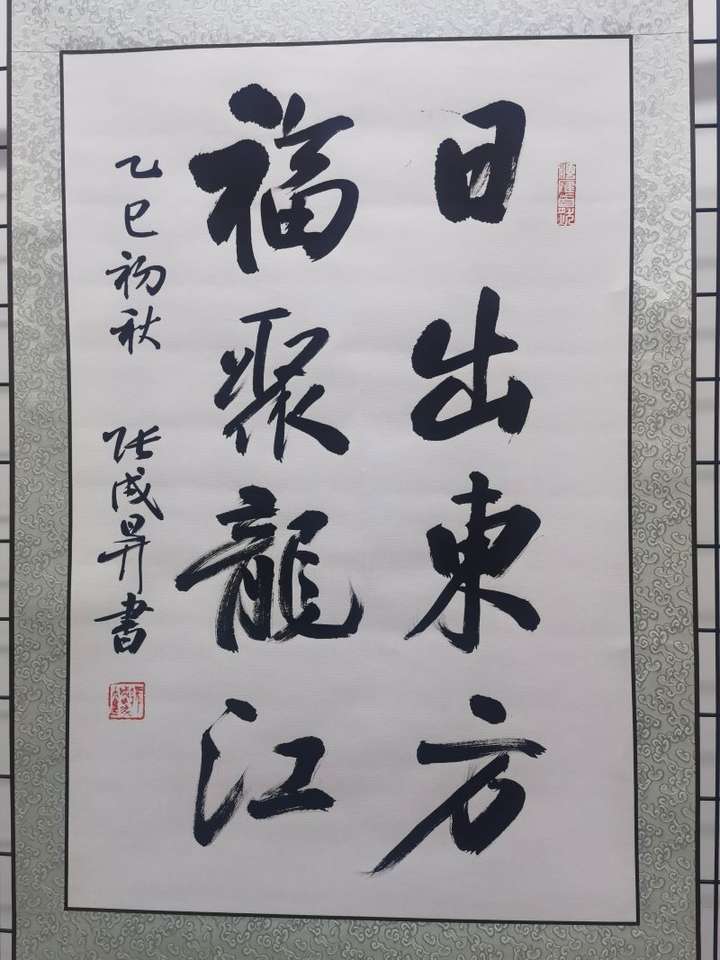 日出東方
福聚龍江
乙巳初秋 张成昇書